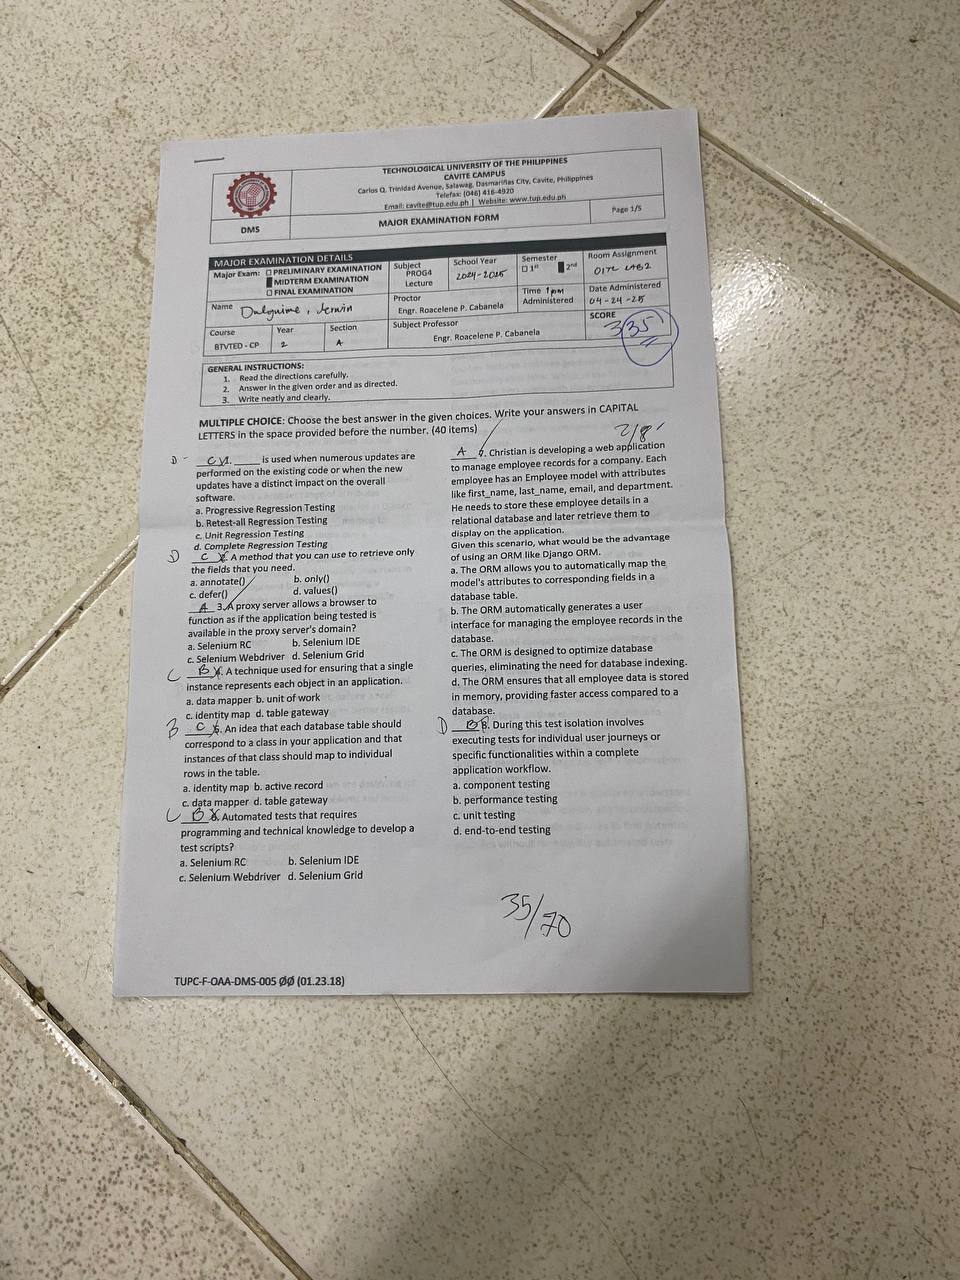 TECHNOLOGICAL UNIVERSITY OF THE PHILIPPINES
CAVITE CAMPUS
Carlos Q. Trinidad Avenue, Salawag, Dasmariñas City, Cavite, Philippines
Telefax: (046) 416-4920
Email: cavite@tup.edu.ph | Website: www.tup.edu.ph
DMS
MAJOR EXAMINATION FORM
Page 1/5
MAJOR EXAMINATION DETAILS
Major Exam: PRELIMINARY EXAMINATION
MIDTERM EXAMINATION
FINAL EXAMINATION
Subject
PROG4
Lecture
School Year
2024-2025
Semester
1st 2nd
Room Assignment
Name
Proctor
Engr. Roacelene P. Cabanela
Time 1pm
Administered
Date Administered
04-24-25
Course
BTVTED - CP
Year
2
Section
A
Subject Professor
Engr. Roacelene P. Cabanela
SCORE
35
GENERAL INSTRUCTIONS:
1. Read the directions carefully.
2. Answer in the given order and as directed.
3. Write neatly and clearly.
MULTIPLE CHOICE: Choose the best answer in the given choices. Write your answers in CAPITAL
LETTERS in the space provided before the number. (40 items)
2/8
D - C 1. ____ is used when numerous updates are
performed on the existing code or when the new
updates have a distinct impact on the overall
software.
a. Progressive Regression Testing
b. Retest-all Regression Testing
c. Unit Regression Testing
d. Complete Regression Testing
D C 2. A method that you can use to retrieve only
the fields that you need.
a. annotate() b. only()
c. defer() d. values()
A 3. A proxy server allows a browser to
function as if the application being tested is
available in the proxy server's domain?
a. Selenium RC b. Selenium IDE
c. Selenium Webdriver d. Selenium Grid
C B 4. A technique used for ensuring that a single
instance represents each object in an application.
a. data mapper b. unit of work
c. identity map d. table gateway
B C 5. An idea that each database table should
correspond to a class in your application and that
instances of that class should map to individual
rows in the table.
a. identity map b. active record
c. data mapper d. table gateway
C B 6. Automated tests that requires
programming and technical knowledge to develop a
test scripts?
a. Selenium RC b. Selenium IDE
c. Selenium Webdriver d. Selenium Grid
A 7. Christian is developing a web application
to manage employee records for a company. Each
employee has an Employee model with attributes
like first_name, last_name, email, and department.
He needs to store these employee details in a
relational database and later retrieve them to
display on the application.
Given this scenario, what would be the advantage
of using an ORM like Django ORM.
a. The ORM allows you to automatically map the
model's attributes to corresponding fields in a
database table.
b. The ORM automatically generates a user
interface for managing the employee records in the
database.
c. The ORM is designed to optimize database
queries, eliminating the need for database indexing.
d. The ORM ensures that all employee data is stored
in memory, providing faster access compared to a
database.
D B 8. During this test isolation involves
executing tests for individual user journeys or
specific functionalities within a complete
application workflow.
a. component testing
b. performance testing
c. unit testing
d. end-to-end testing
35/70
TUPC-F-OAA-DMS-005 ØØ (01.23.18)